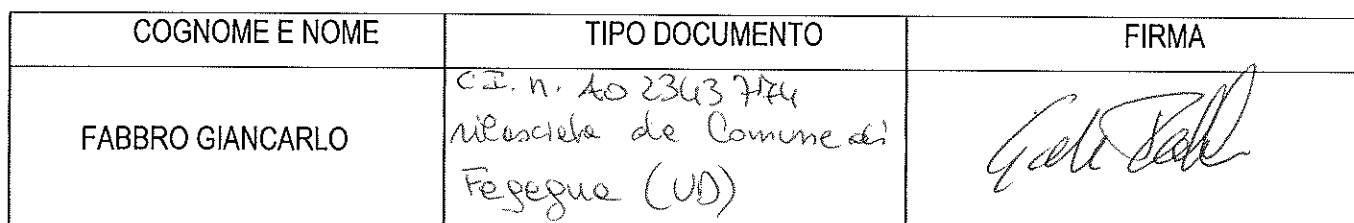 COGNOME E NOME TIPO DOCUMENTO FIRMA
C.I. n.
FABBRO GIANCARLO rilasciata da Comune di
Fagagna (UD)